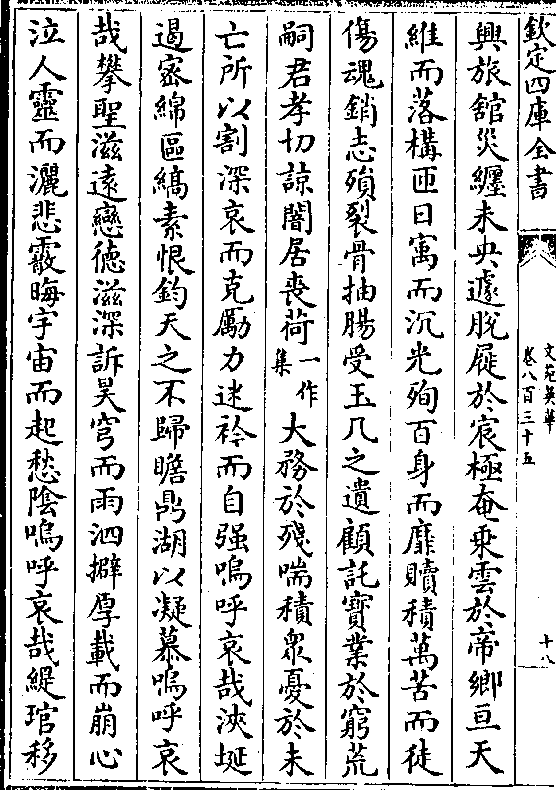 欽定四庫全書
文苑英華
卷八百三十五
十八
興旅舘災纏未央遽脫屣於宸極奄乗雲於帝鄉亘天
維而落構匝日寓而沉光殉百身而靡贖積萬苦而徒
傷魂銷志殞裂骨抽腸受玉几之遺顧託寳業於窮荒
嗣君孝切諒闇居喪荷一作集大務於殘喘積衆憂於未
亡所以割深哀而克勵力迷衿而自强嗚呼哀哉浹埏
遏宻綿區縞素恨鈞天之不歸瞻鼎湖以凝慕嗚呼哀
哉攀聖滋逺戀徳滋深訴昊穹而雨泗擗厚載而崩心
泣人靈而灑悲霰晦宇宙而起愁陰嗚呼哀哉緹琯移